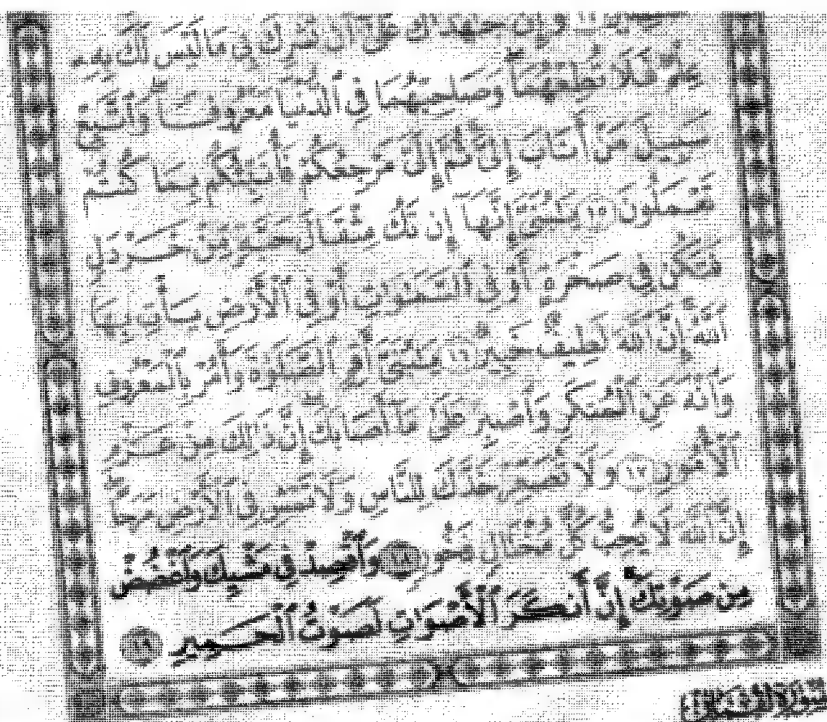 وَإِن جَٰهَدَاكَ عَلَىٰٓ أَن تُشْرِكَ بِى مَا لَيْسَ لَكَ بِهِۦ
عِلْمٌ فَلَا تُطِعْهُمَا وَصَاحِبْهُمَا فِى ٱلدُّنْيَا مَعْرُوفًا وَٱتَّبِعْ
سَبِيلَ مَنْ أَنَابَ إِلَىَّ ثُمَّ إِلَىَّ مَرْجِعُكُمْ فَأُنَبِّئُكُم بِمَا كُنتُمْ
تَعْمَلُونَ ١٥ يَٰبُنَىَّ إِنَّهَآ إِن تَكُ مِثْقَالَ حَبَّةٍ مِّنْ خَرْدَلٍ
فَتَكُن فِى صَخْرَةٍ أَوْ فِى ٱلسَّمَٰوَٰتِ أَوْ فِى ٱلْأَرْضِ يَأْتِ بِهَا
ٱللَّهُ إِنَّ ٱللَّهَ لَطِيفٌ خَبِيرٌ ١٦ يَٰبُنَىَّ أَقِمِ ٱلصَّلَوٰةَ وَأْمُرْ بِٱلْمَعْرُوفِ
وَٱنْهَ عَنِ ٱلْمُنكَرِ وَٱصْبِرْ عَلَىٰ مَآ أَصَابَكَ إِنَّ ذَٰلِكَ مِنْ عَزْمِ
ٱلْأُمُورِ ١٧ وَلَا تُصَعِّرْ خَدَّكَ لِلنَّاسِ وَلَا تَمْشِ فِى ٱلْأَرْضِ مَرَحًا
إِنَّ ٱللَّهَ لَا يُحِبُّ كُلَّ مُخْتَالٍ فَخُورٍ ١٨ وَٱقْصِدْ فِى مَشْيِكَ وَٱغْضُضْ
مِن صَوْتِكَ إِنَّ أَنكَرَ ٱلْأَصْوَٰتِ لَصَوْتُ ٱلْحَمِيرِ ١٩